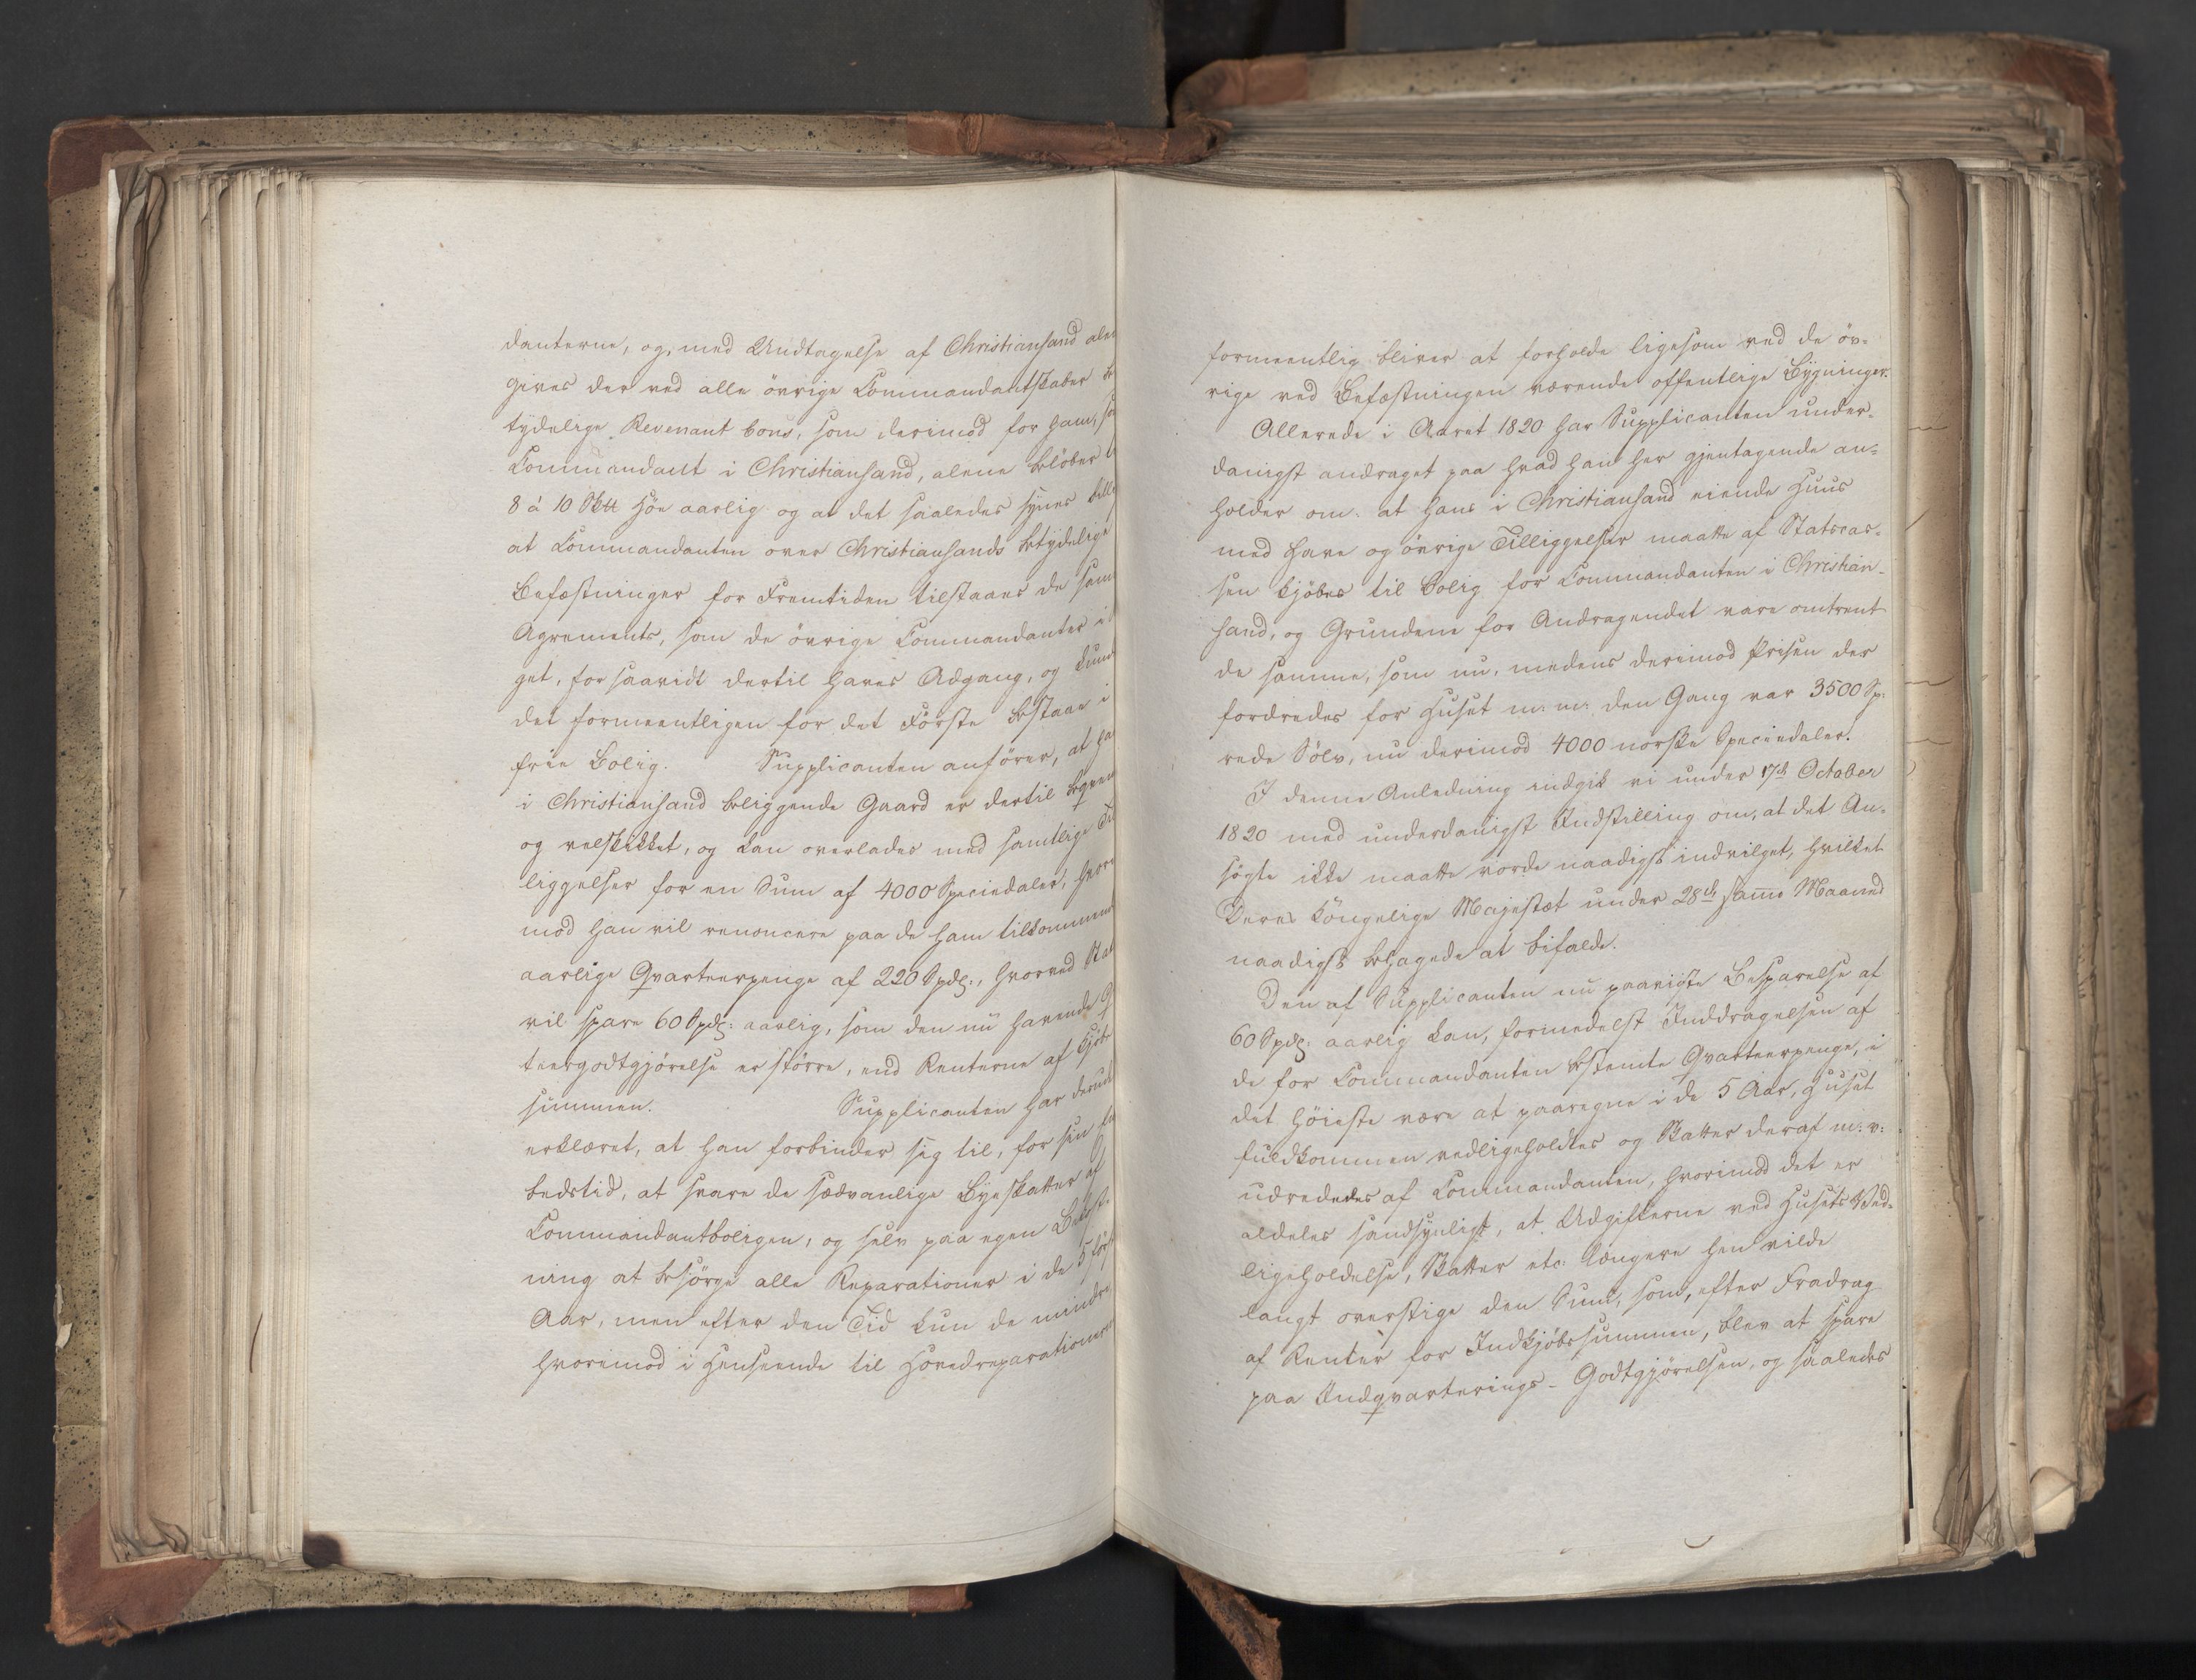 danterne, og, med Undtagelse af Christiansand alen
gives der ved alle övrige Commandantskaber be
tydelige Revenant bons, som derimod for ham, so
Commandant i Christiansand, alene belöber
8 à 10 Skll Höe aarlig og at det saaledes synes bill
at Commandanten over Christiansands betydelige
Befæstninger for Fremtiden tilstaaes de sam
Agrements, som de övrige Commandanter i
get, forsaavidt dertil haves Adgang, og kund
det formeentligen for det Förste bestaae i
frie Bolig. Supplicanten anförer, at ha
i Christiansand beliggende Gaard er dertil beqvem
og velskikket, og kan overlades med samtlige Til
liggelser for en Sum af 4000 Speciedaler, hvor
mod han vil renoncere paa de ham tilkommend
aarlige Qvarteerpenge af 220 Spdlr:, hvorved Stat
vil spare 60 Spdlr: aarlig, som den nu havende Q
teergodtgjörelse er större, end Renterne af Kjöb
summen. Supplicanten har derud
erklæret, at han forbinder sig til, for sin Em
bedstid, at svare de sædvanlige Byeskatter af
Commandantboligen, og selv paa egen Bekost-
ning at besörge alle Reparationer i de 5 förs
Aar, men efter den Tid kun de mindre
hvorimod i Henseende til Hovedreparationerne
formeentlig bliver at forholde ligesom ved de öv-
rige ved Befæstningen værende offentlige Bygninger.
Allerede i Aaret 1820 har Supplicanten under-
danigst andraget paa hvad han her gjentagende an-
holder om: at hans i Christiansand eiende Huus
med Have og övrige Tilliggelser maatte af Statscas-
sen kjöbes til Bolig for Commandanten i Christian-
sand, og Grundene for Andragendet vare omtrent
de samme, som nu, medens derimod Prisen der
fordredes for Huset m: m: den Gang var 3500 Sp:
rede Sölv, nu derimod 4000 norske Speciedaler.
I denne Anledning indgik vi under 17de October
1820 med underdanigst Indstilling om, at det An-
sögte ikke maatte vorde naadigst indvilget, hvilket
Deres Kongelige Majestæt under 28de samme Maaned
naadigst behagede at bifalde.
Den af Supplicanten nu paaviste Besparelse af
60 Spdlr: aarlig kan, formedelst Inddragelsen af
de for Commandanten bestemte Qvarteerpenge, i
det höieste være at paaregne i de 5 Aar, Huset
fuldkommen vedligeholdtes og Skatter deraf m: v:
udrededes af Commandanten, hvorimod det er
aldeles sandsynligt, at Udgifterne ved Husets Ved-
ligeholdelse, Skatter etc: længere hen vilde
langt overstige den Sum, som, efter Fradrag
af Renter for Indkjöbssummen, blev at spare
paa Indqvarterings-Godtgjörelsen, og saaledes